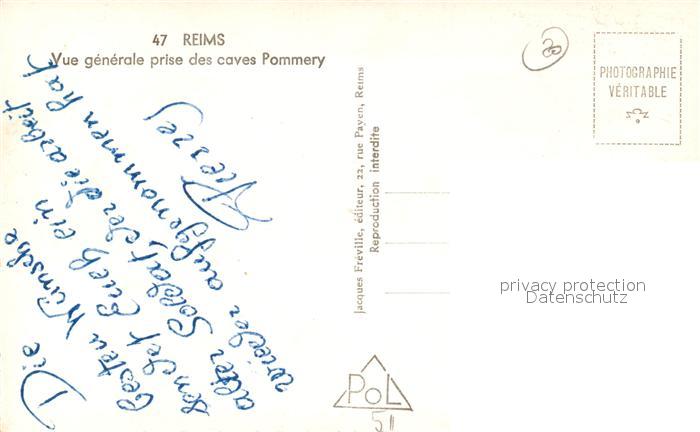 47 REIMS
Vue générale prise des caves Pommery
Die
besten Wünsche
sendet Euch ein
alter Soldat, der die arbeit
wieder aufgenommen hat
Pierrey
Jacques Fréville, éditeur, 22, rue Payen, Reims
Reproduction interdite
20
PHOTOGRAPHIE
VÉRITABLE
privacy protection
Datenschutz
PoL
51